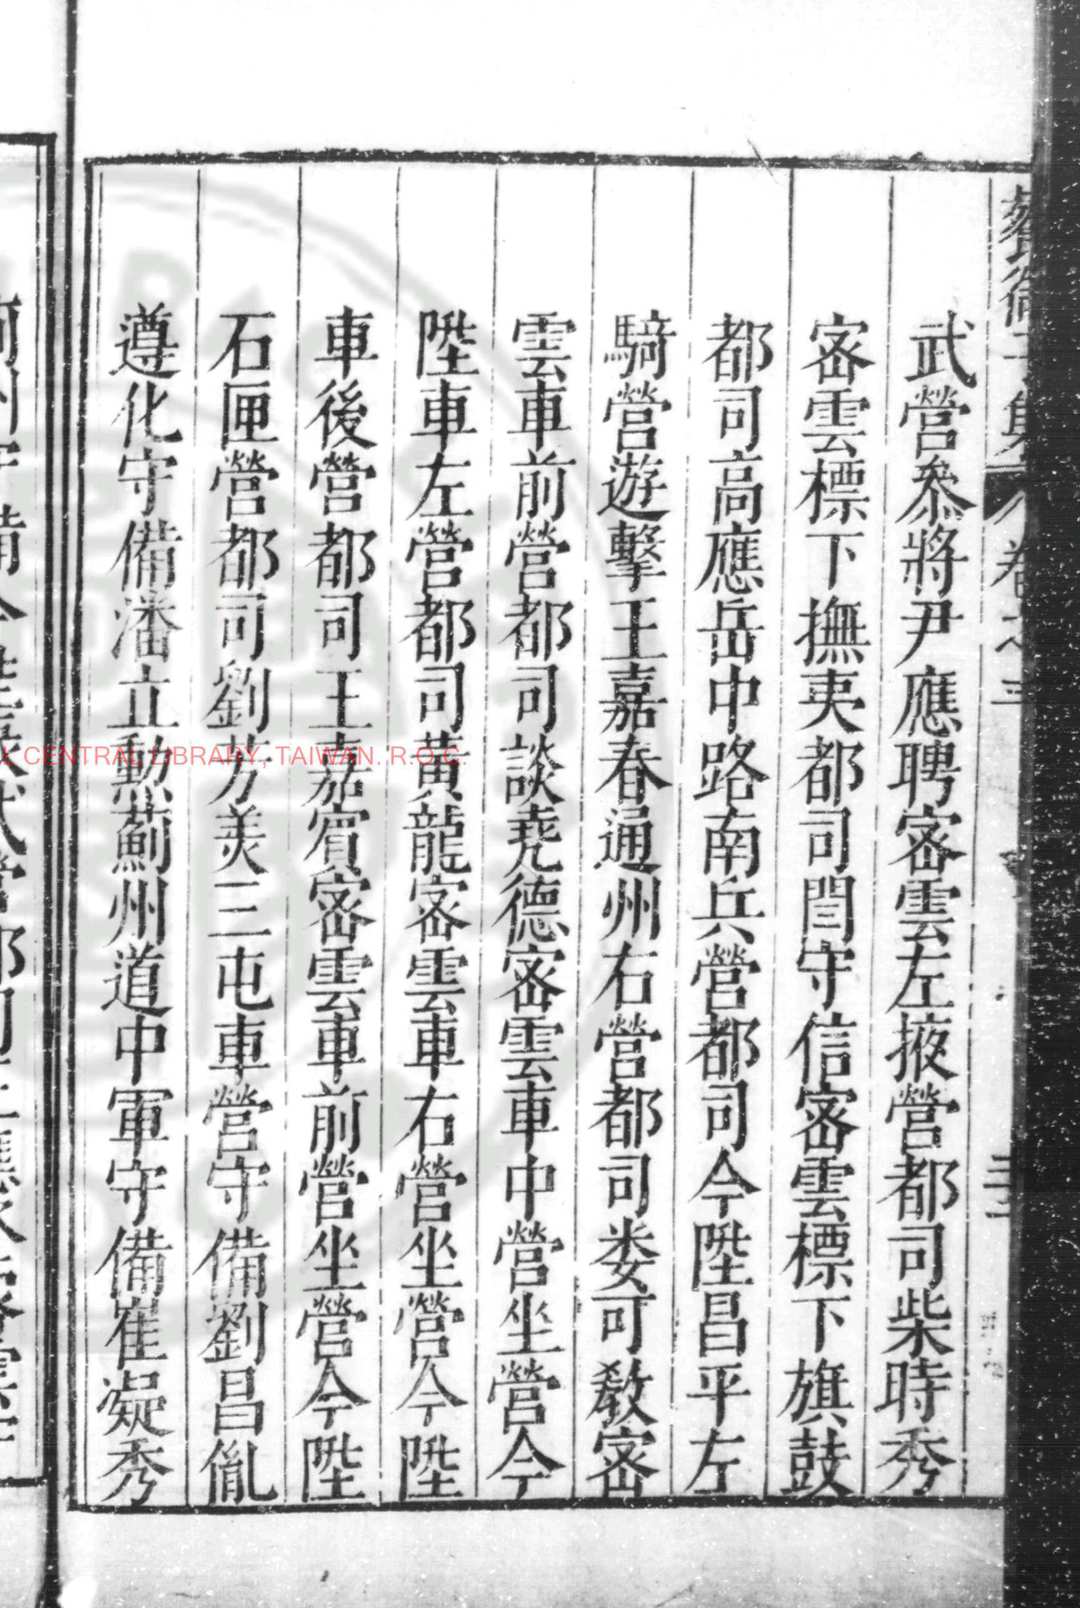 武營叅將尹應聘密雲左掖營都司柴時秀
密雲標下撫夷都司閻守信密雲標下旗鼓
都司高應岳中路南兵營都司今陞昌平左
騎營遊擊王嘉春通州右營都司娄可敎密
雲車前營都司談堯德密雲車中營坐營今
陞車左營都司黃龍密雲車右營坐營今陞
車後營都司王嘉賔密雲車前營坐營今陞
石匣營都司劉芳美三屯車營守備劉昌胤
遵化守備潘立勲薊州道中軍守備崔凝秀
CENTRAL LIBRARY, TAIWAN. R.O.C.